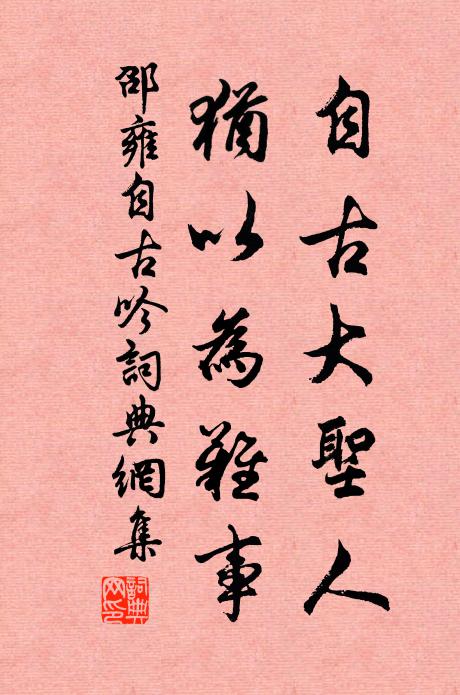 自古大聖人
猶以為難事
邵雍自古吟詞典網集
詞典網印